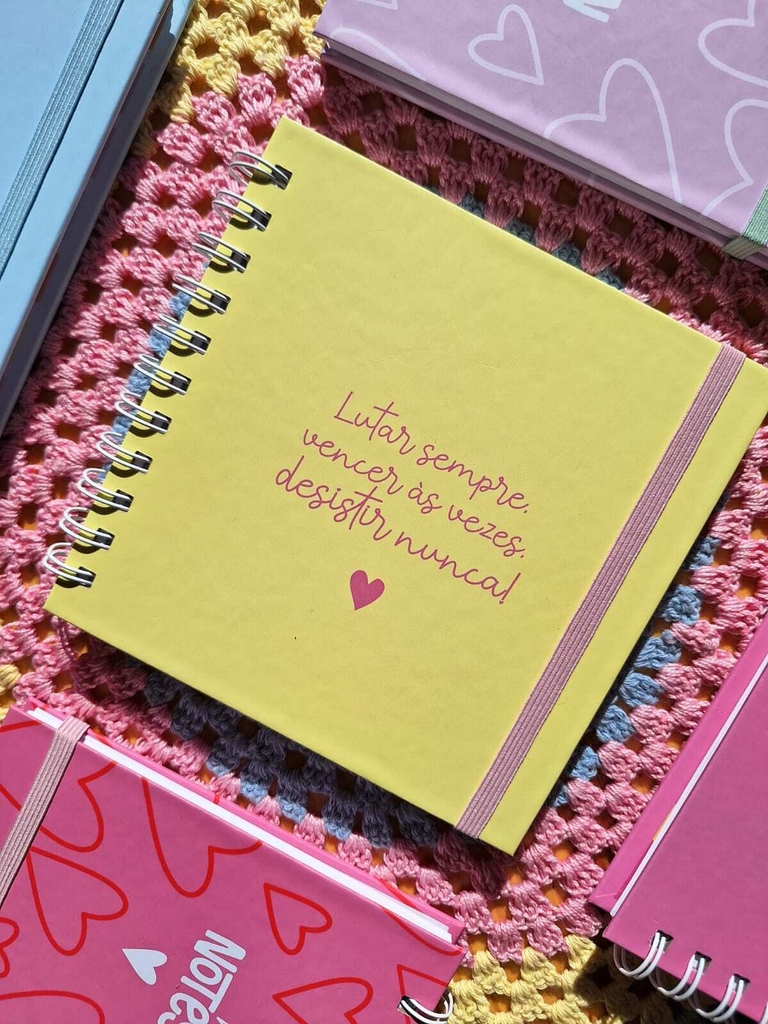 Lutar sempre.
vencer às vezes.
desistir nunca!
NOTES